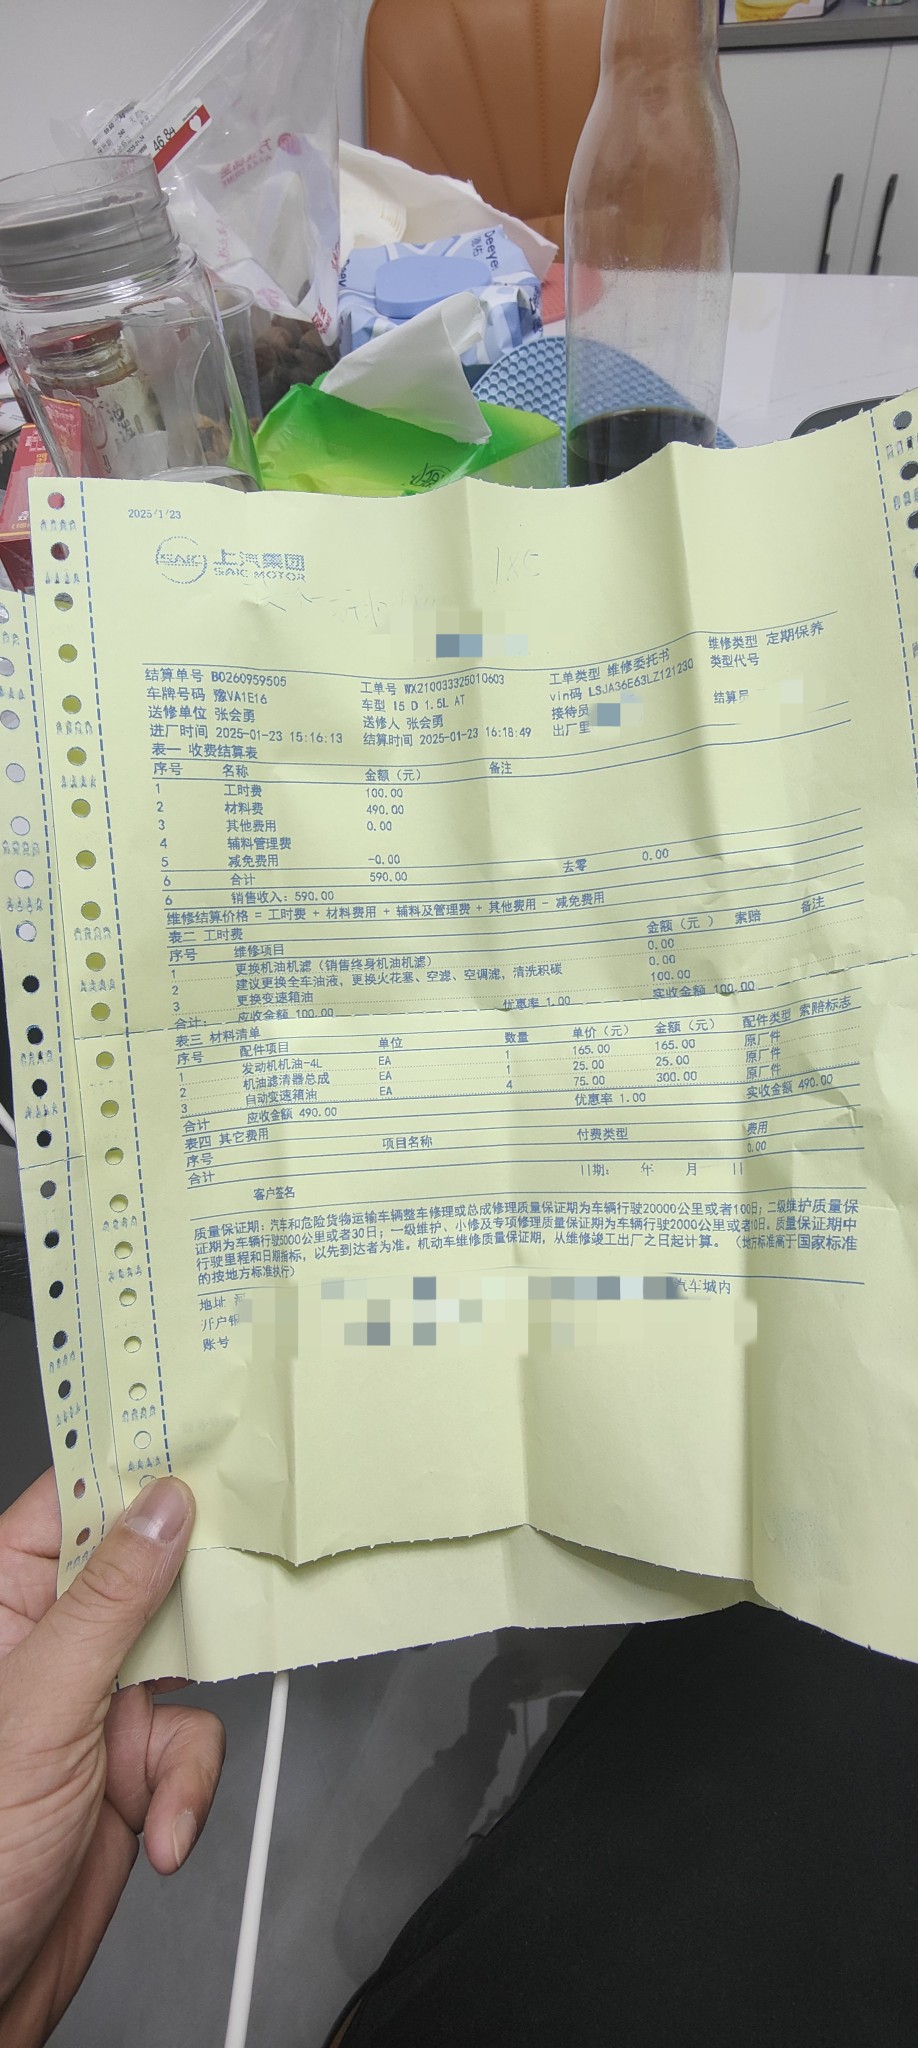 46.84
Deeyeo
2025/1/23
SAIC 上汽集团
SAIC MOTOR
结算单号 B0260959505 工单号 WX210033325010603 工单类型 维修委托书 维修类型 定期保养
车牌号码 豫VA1E16 车型 I5 D 1.5L AT vin码 LSJA36E63LZ121230 类型代号
送修单位 张会勇 送修人 张会勇 接待员 结算员
进厂时间 2025-01-23 15:16:13 结算时间 2025-01-23 16:18:49 出厂里
表一 收费结算表
序号 名称 金额（元） 备注
1 工时费 100.00
2 材料费 490.00
3 其他费用 0.00
4 辅料管理费
5 减免费用 -0.00
6 合计 590.00 去零 0.00
6 销售收入：590.00
维修结算价格 = 工时费 + 材料费用 + 辅料及管理费 + 其他费用 - 减免费用
表二 工时费
序号 维修项目 金额（元 ） 索赔 备注
1 更换机油机滤（销售终身机油机滤） 0.00
2 建议更换全车油液，更换火花塞、空滤、空调滤，清洗积碳 0.00
3 更换变速箱油 100.00
合计： 应收金额 100.00 优惠率 1.00 实收金额 100.00
表三 材料清单
序号 配件项目 单位 数量 单价（元） 金额（元） 配件类型 索赔标志
1 发动机机油-4L EA 1 165.00 165.00 原厂件
2 机油滤清器总成 EA 1 25.00 25.00 原厂件
3 自动变速箱油 EA 4 75.00 300.00 原厂件
合计 应收金额 490.00 优惠率 1.00 实收金额 490.00
表四 其它费用
序号 项目名称 付费类型 费用
合计 0.00
客户签名 日期： 年 月 日
质量保证期：汽车和危险货物运输车辆整车修理或总成修理质量保证期为车辆行驶20000公里或者100日；二级维护质量保
证期为车辆行驶5000公里或者30日；一级维护、小修及专项修理质量保证期为车辆行驶2000公里或者10日。质量保证期中
行驶里程和日期指标，以先到达者为准。机动车维修质量保证期，从维修竣工出厂之日起计算。（地方标准高于国家标准
的按地方标准执行）
地址 汽车城内
开户银
账号